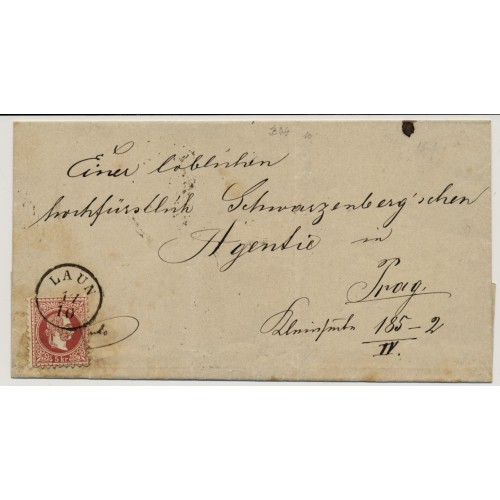 Einer löblichen
hochfürstlich Schwarzenberg'schen
Agentie in
Prag.
Kleinseite 185-2
IV.
LAUN
11
10
5 kr